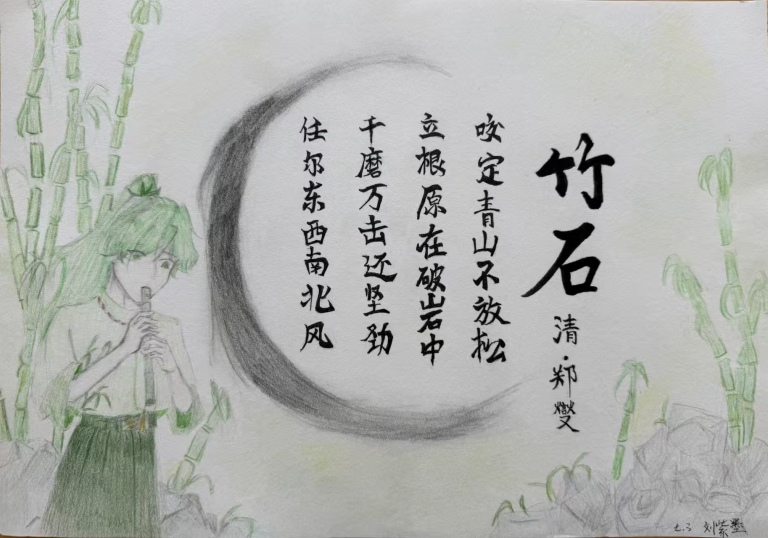 竹石
清·郑燮
咬定青山不放松
立根原在破岩中
千磨万击还坚劲
任尔东西南北风
七.3 刘紫墨